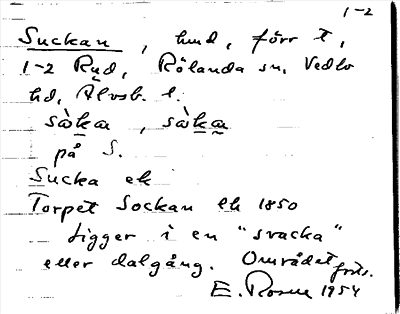 1-2
Suckan, hmd, förr t,
1-2 Rud, Rölanda sn, Vedbo
hd, Älvsb. l.
sàka, sàka
på S.
Sucka ek
Torpet Sockan ek 1850
Ligger i en "svacka"
eller dalgång. Området förts.
E. Rosen 1954